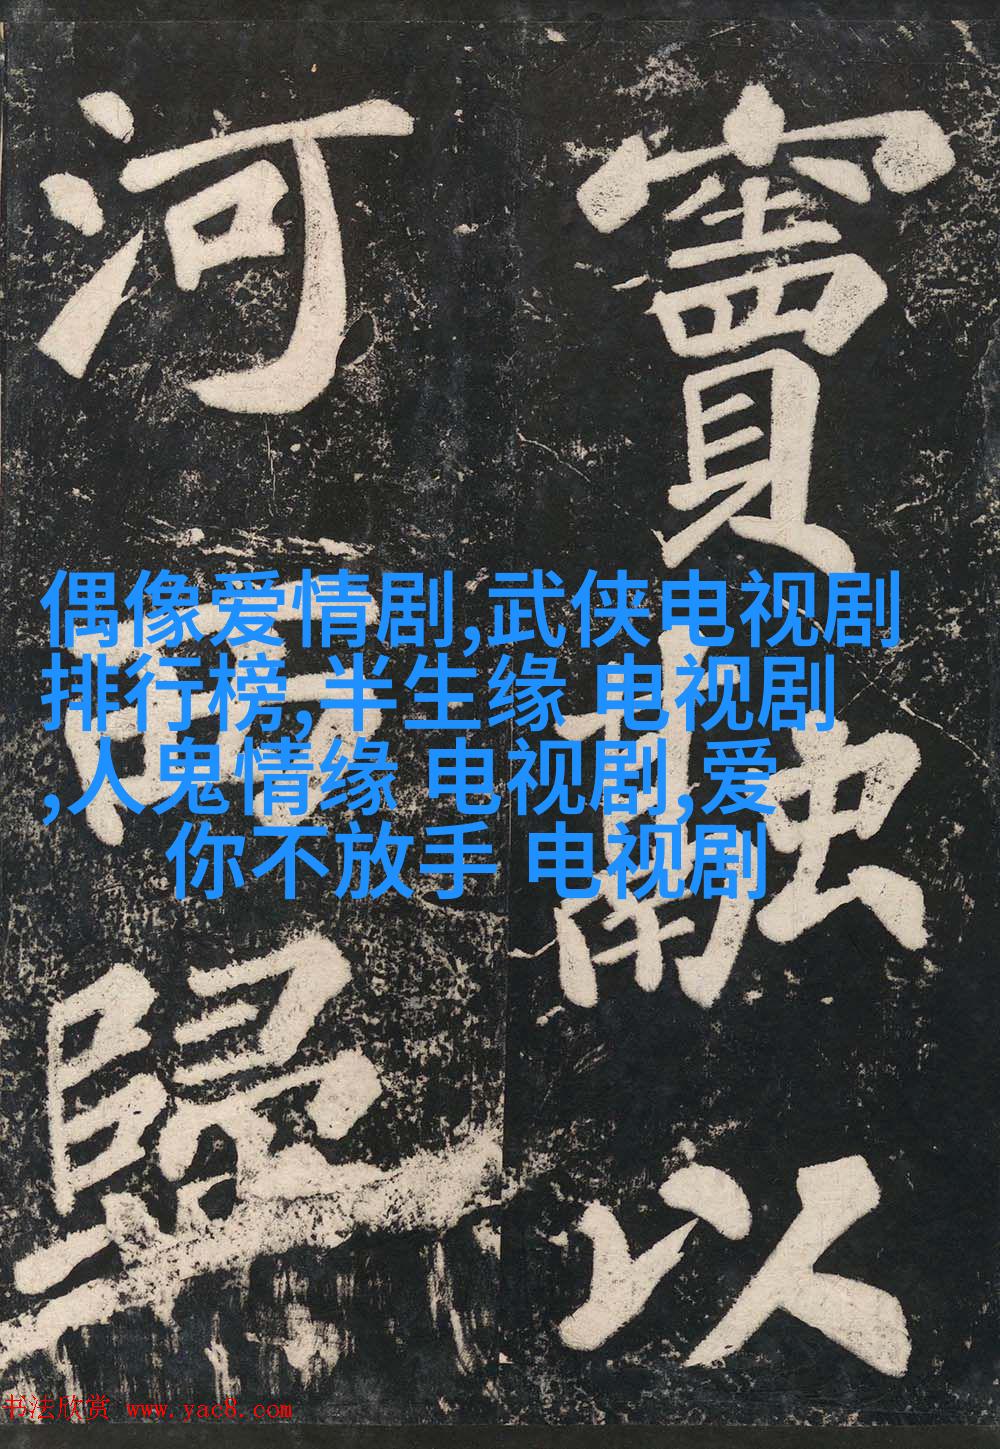 竇融以
河西歸
偶像爱情剧,武侠电视剧
排行榜,半生缘 电视剧
,人鬼情缘 电视剧,爱
你不放手 电视剧
书法欣赏 www.yac8.com